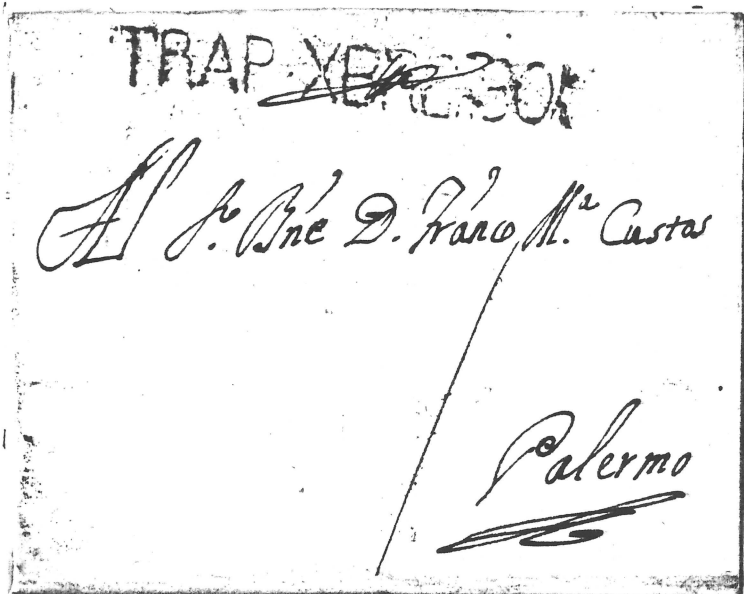 TRAP
Al S.r Bne D. Franco M.a Custos
Palermo